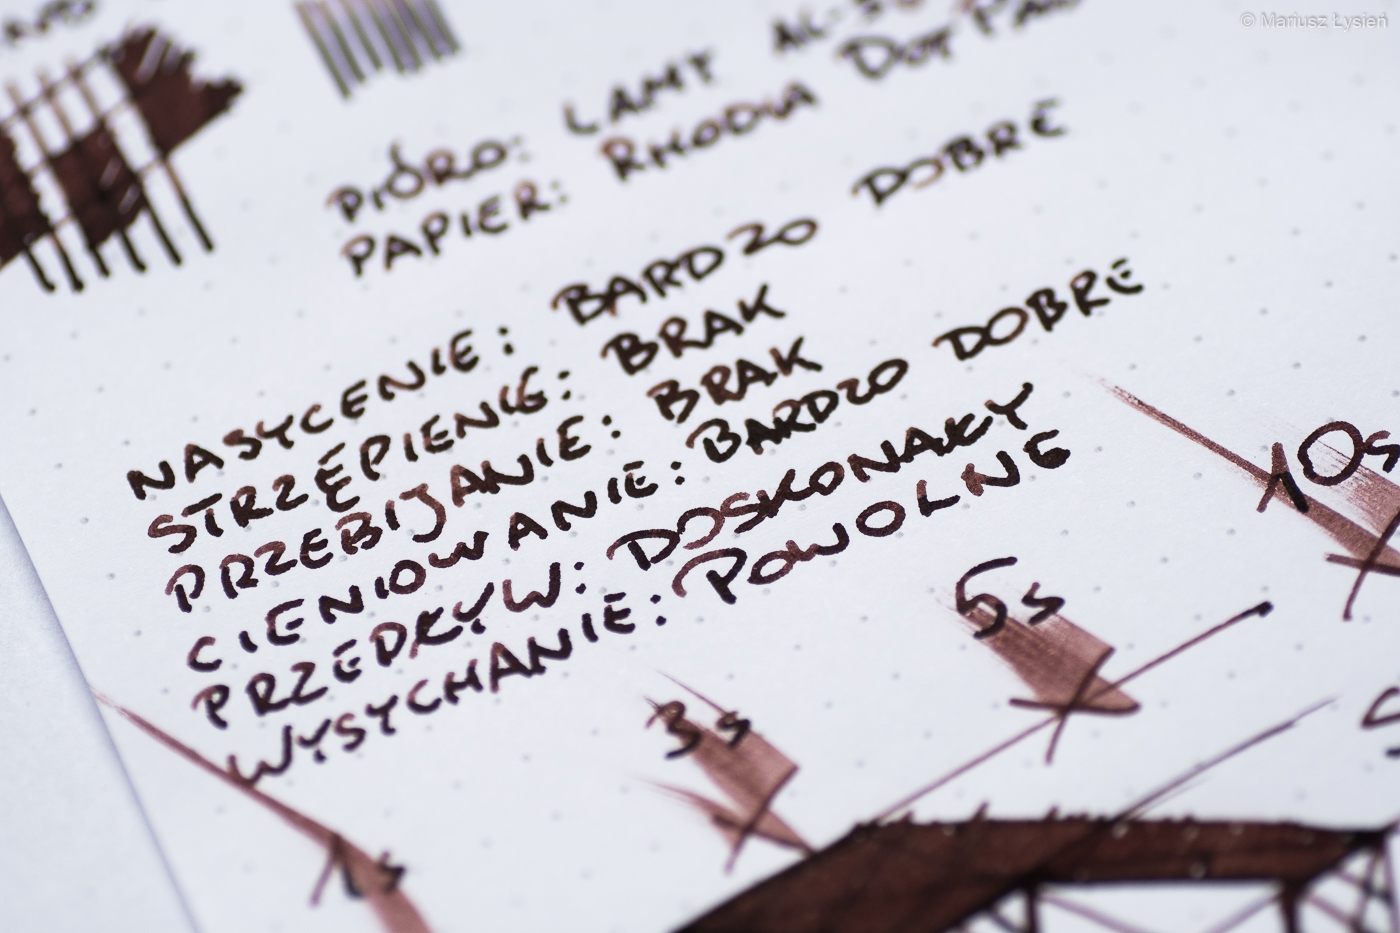 © Mariusz Łysień
PIÓRO: LAMY AL-
PAPIER: RHODIA DOT PAD
NASYCENIE: BARDZO DOBRE
STRZĘPIENIE: BRAK
PRZEBIJANIE: BRAK
CIENIOWANIE: BARDZO DOBRE
PRZEPŁYW: DOSKONAŁY
WYSYCHANIE: POWOLNE
10s
5s
3s
1s